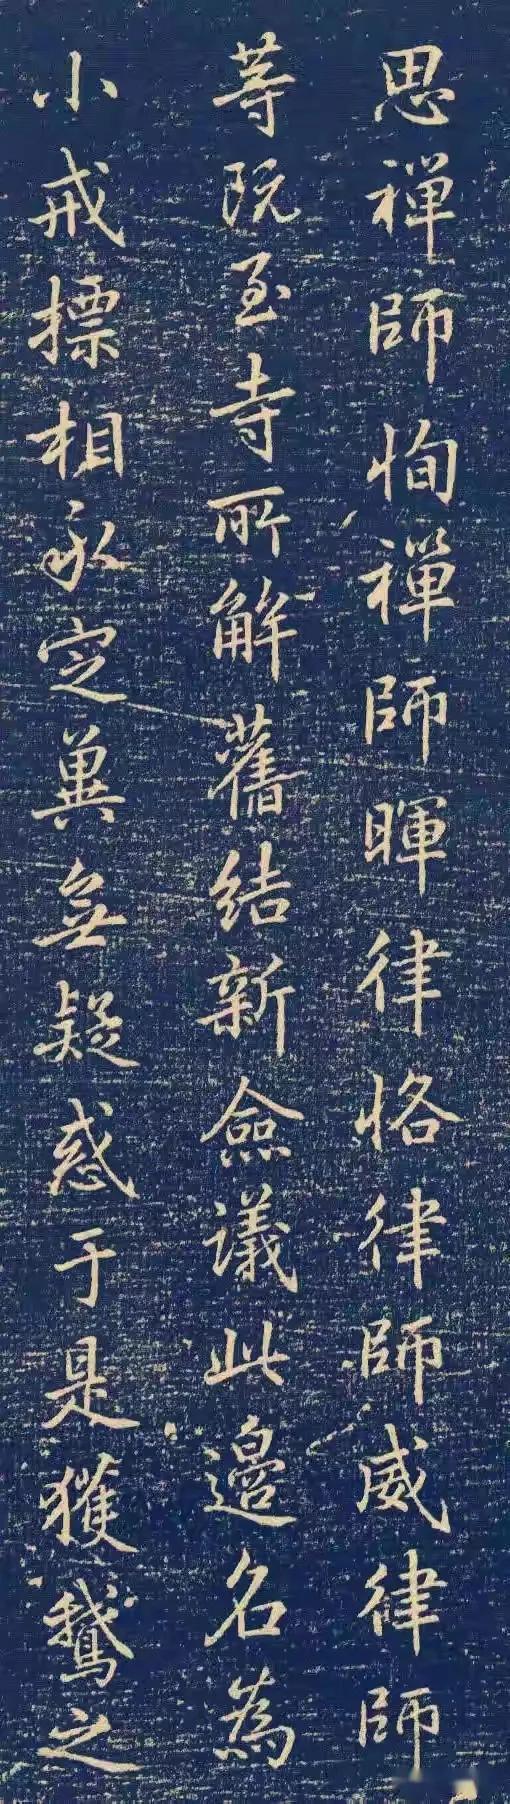 思禪師恂禪師暉律恪律師威律師
等既至寺所解舊結新僉議此邉名為
小戒摽相永定冀無疑惑于是獲鵝之